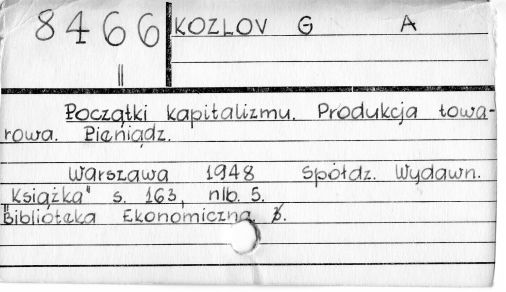 8466 KOZLOV G A
II
Początki kapitalizmu. Produkcja towa-
rowa. Pieniądz.
Warszawa 1948 Spółdz. Wydawn.
"Książka" s. 163, nlb. 5.
Biblioteka Ekonomiczna. 3.